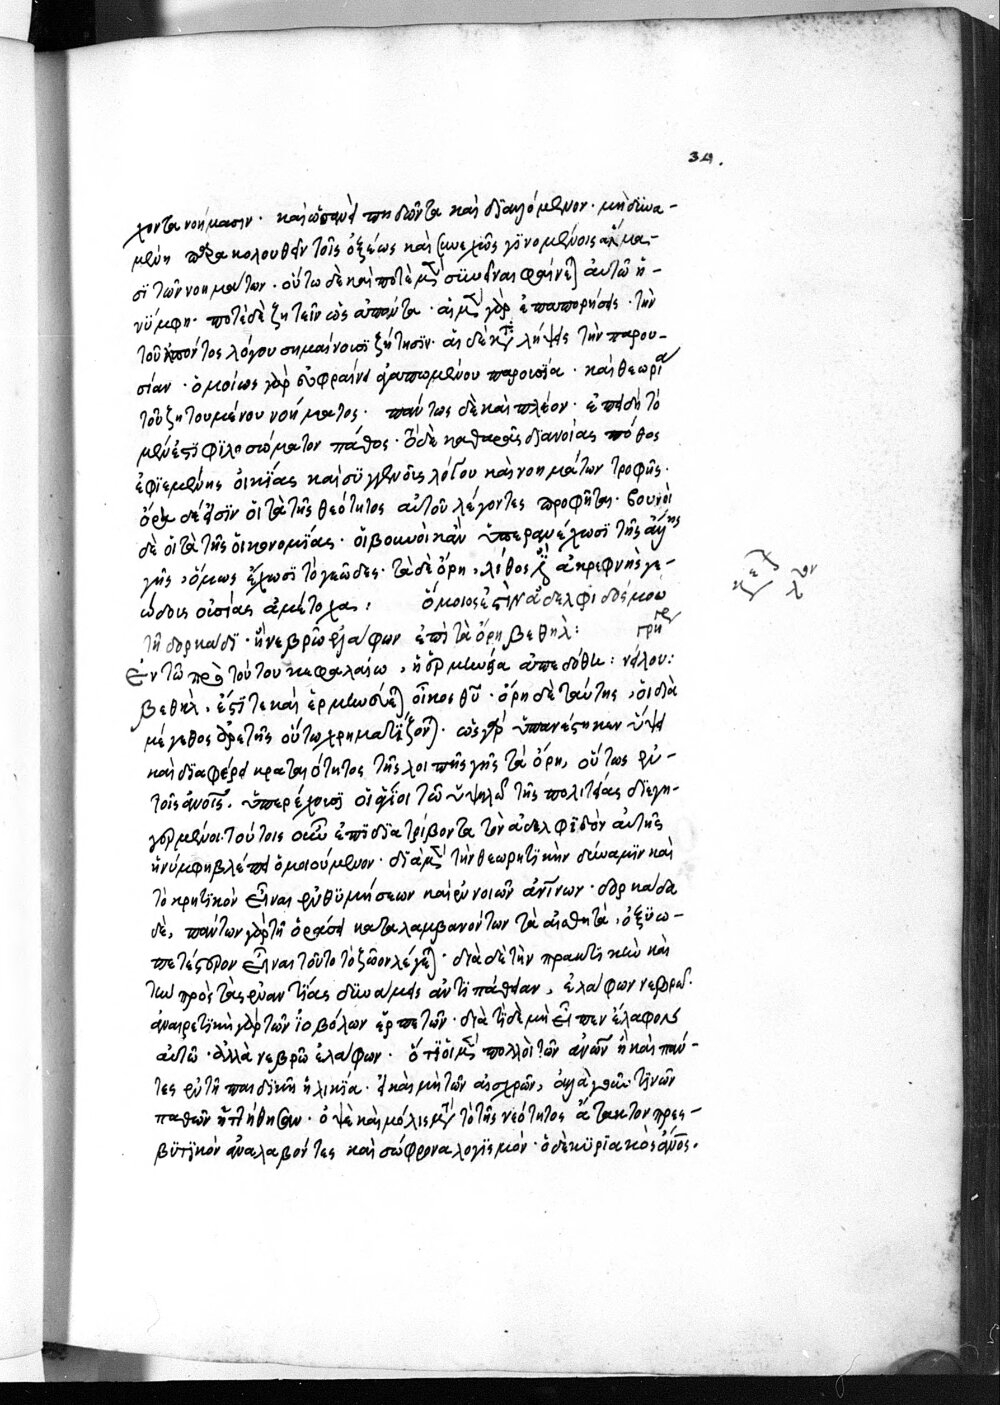 34.
χοντα νοήμασιν · καὶ ὥσπερ πηδῶντα καὶ διαλλόμενον · μὴ δυνα-
μένη παρακολουθεῖν τοῖς ὀξέως καὶ συνεχῶς γϊνομένοις ἅλμα-
σϊ τῶν νοημάτων · οὕτω δὲ καὶ ποτὲ μὲν συνεῖναι φαίνεται αὐτῷ ἡ -
νύμφη · ποτὲ δὲ ζητεῖν ὡς ἀπόντα · αἱ μὲν γὰρ ἐπαπορήσεις · τὴν
τοῦ λόγου σημαίνουσϊ ζήτησϊν · αἱ δὲ λήψεις τὴν παρου-
σίαν · ὁμοίως γὰρ εὐφραίνει ἀγαπωμένου παρουσία · καὶ θεωρία
τοῦ ζητουμένου νοήματος · πάντως δὲ καὶ πλέον · ἐπειδὴ τὸ
μὲν ἐστϊ φϊλοσώματον πάθος · ὁ δὲ καθαρᾶς διανοίας πόθος
ἐφϊεμένης οἰκείας καὶ συγγενοῦς λόγου καὶ νοημάτων τροφῆς ·
ὄρη δέ εἰσϊν οἱ τὰ τῆς θεότητος αὐτοῦ λέγοντες προφῆται · βουνοὶ
δὲ οἱ τὰ τῆς οἰκονομίας · οἱ βουνοὶ κἂν ὑπερανέχωσϊ τῆς ἄλλης
γῆς, ὅμως ἔχωσϊ τὸ γεῶδες · τὰ δὲ ὄρη, λίθος ἀκρεφνὴς γε-
ώδους οὐσίας ἀμέτοχα : ὅμοιος ἐστὶν ἀδελφιδός μου
τῇ δορκάδϊ · ἢ νεβρῷ ἐλάφων ἐπὶ τὰ ὄρη βεθήλ :
Ἐν τῷ πρὸ τούτου κεφαλαίῳ, ἡ ἑρμηνεία ἀπεδόθη : νείλου :
βεθὴλ, ἐστϊ τε καὶ ἑρμηνεύεται οἶκος θυ · ὄρη δὲ ταύτης, οἱ διὰ
μέγεθος ἀρετῆς οὕτω χρηματίζονται · ὡς γὰρ ὑπανέστηκεν ὕψει
καὶ δϊαφέρει κραταιότητος τῆς λοιπῆς γῆς τὰ ὄρη, οὕτως ἐν -
τοῖς ἀνοις · ὑπερέχουσϊ οἱ ἅγϊοι τῷ ὑψηλῷ τῆς πολιτείας διεγη-
γερμένοι · τούτοις οὖν ἐπϊδϊατρίβοντα τὸν ἀδελφϊδὸν αὐτῆς
ἡ νύμφη βλέπει ὁμοιούμενον · δϊὰ μὲν τὴν θεωρητϊκὴν δύναμϊν καὶ
τὸ κριτϊκὸν εἶναι ἐνθϋμήσεων καὶ ἐννοιῶν ἀνϊνων · δορκάδα
δὲ, πάντων γὰρ τῇ ὁράσει καταλαμβανόντων τὰ αἰσθητὰ, ὀξϋω-
πέστερον εἶναι τοῦτο τὸ ζῶον λέγεται · διὰ δὲ τὴν πρακτϊκὴν καὶ
τὴν πρὸς τὰς ἐναντϊας δυνάμεις ἀντϊπάθειαν, ἐλάφων νεβρῷ ·
ἀναιρετϊκὴ γὰρ τῶν ἰοβόλων ἑρπετῶν · διὰ τϊ δὲ μὴ εἶπεν ἔλαφον
αὐτῷ · ἀλλὰ νεβρῷ ἐλάφων · ὅτϊ οἱ μὲν πολλοὶ τῶν ἀνων ἢ καὶ πάν-
τες ἐν τῇ παιδϊκῇ ἡλικία · εἰ καὶ μὴ τῶν αἰσχρῶν, ἀλλά τϊνῶν
παθῶν ἡττήθησαν · ὀψὲ καὶ μόλις μετὰ τὸ τῆς νεότητος ἄτακτον πρες-
βϋτϊκὸν ἀναλαβόντες καὶ σώφρονα λογϊσμόν · ὁ δὲ κϋρϊακὸς ἀνος.